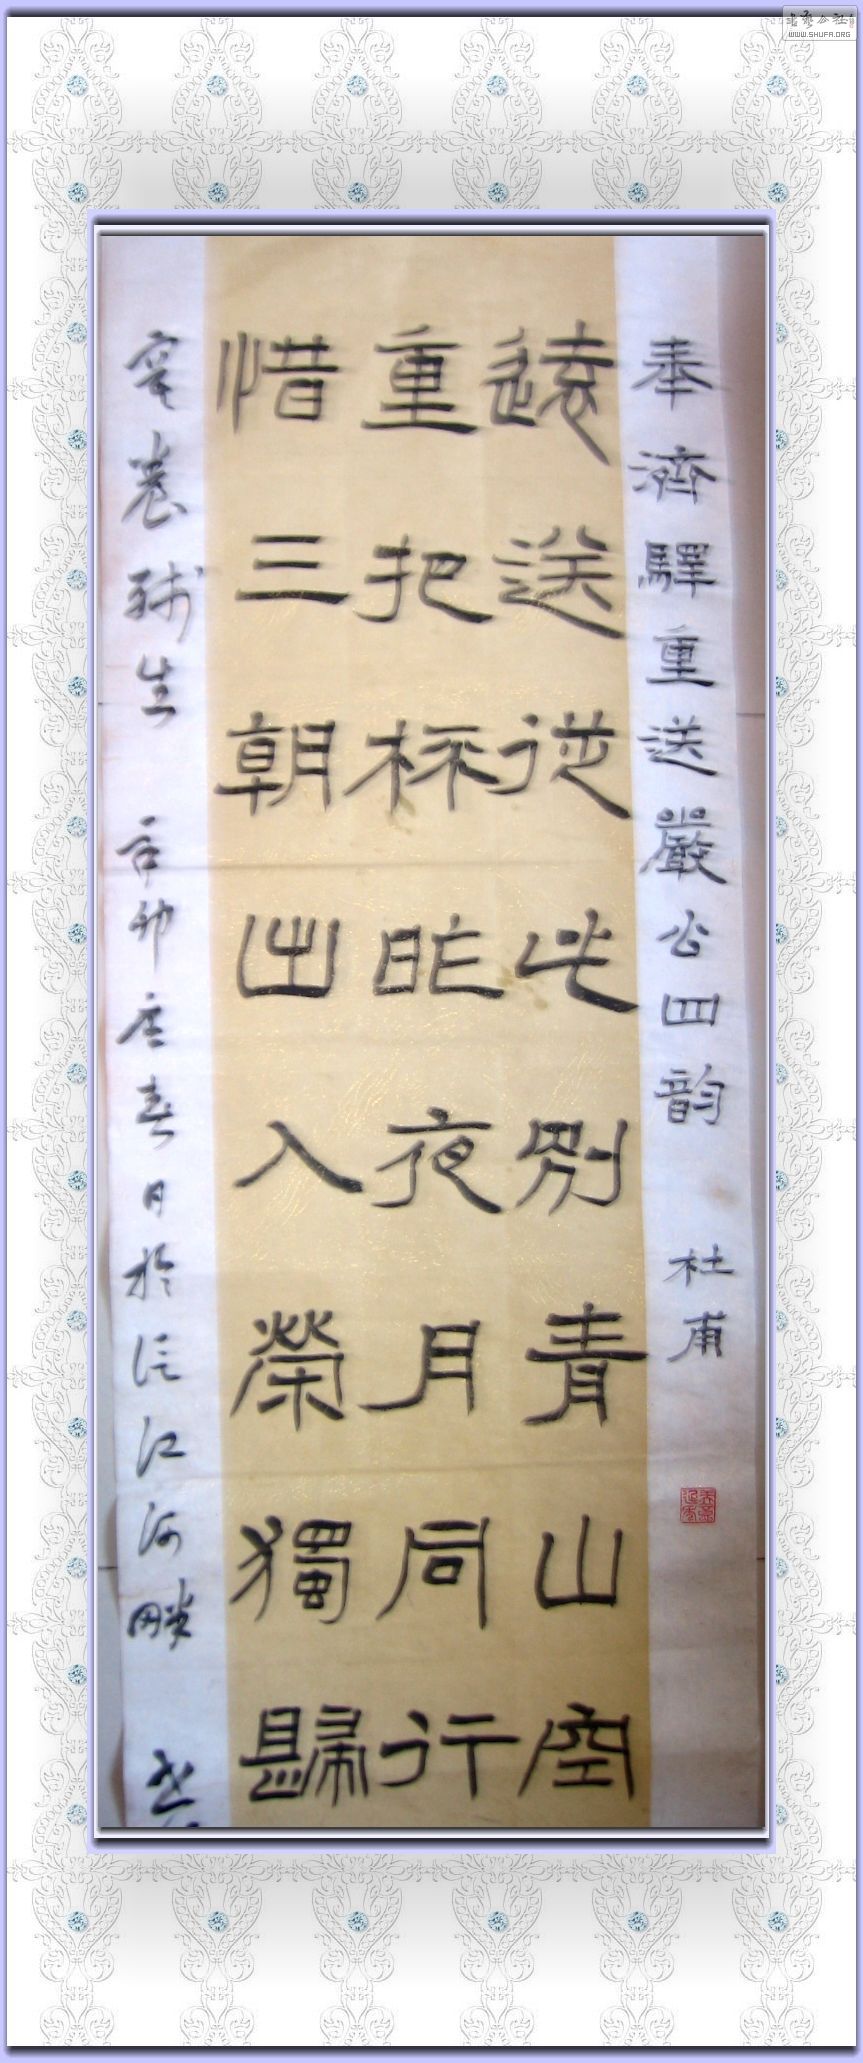 書藝公社
WWW.SHUFA.ORG
奉濟驛重送嚴公四韵 杜甫
遠送從此別青山空
重把杯昨夜月同行
惜三朝出入榮獨歸
養殘生 辛卯春月於江河畔